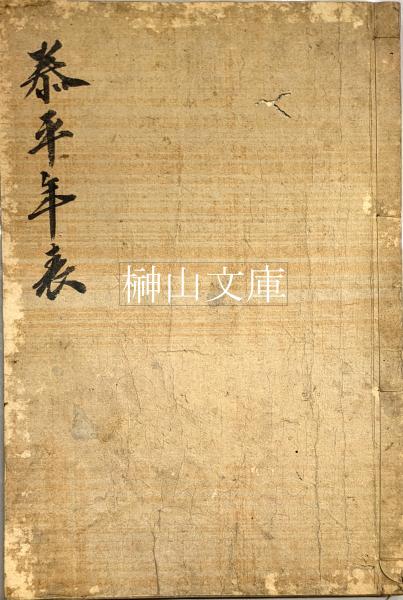 泰平年表
榊山文庫